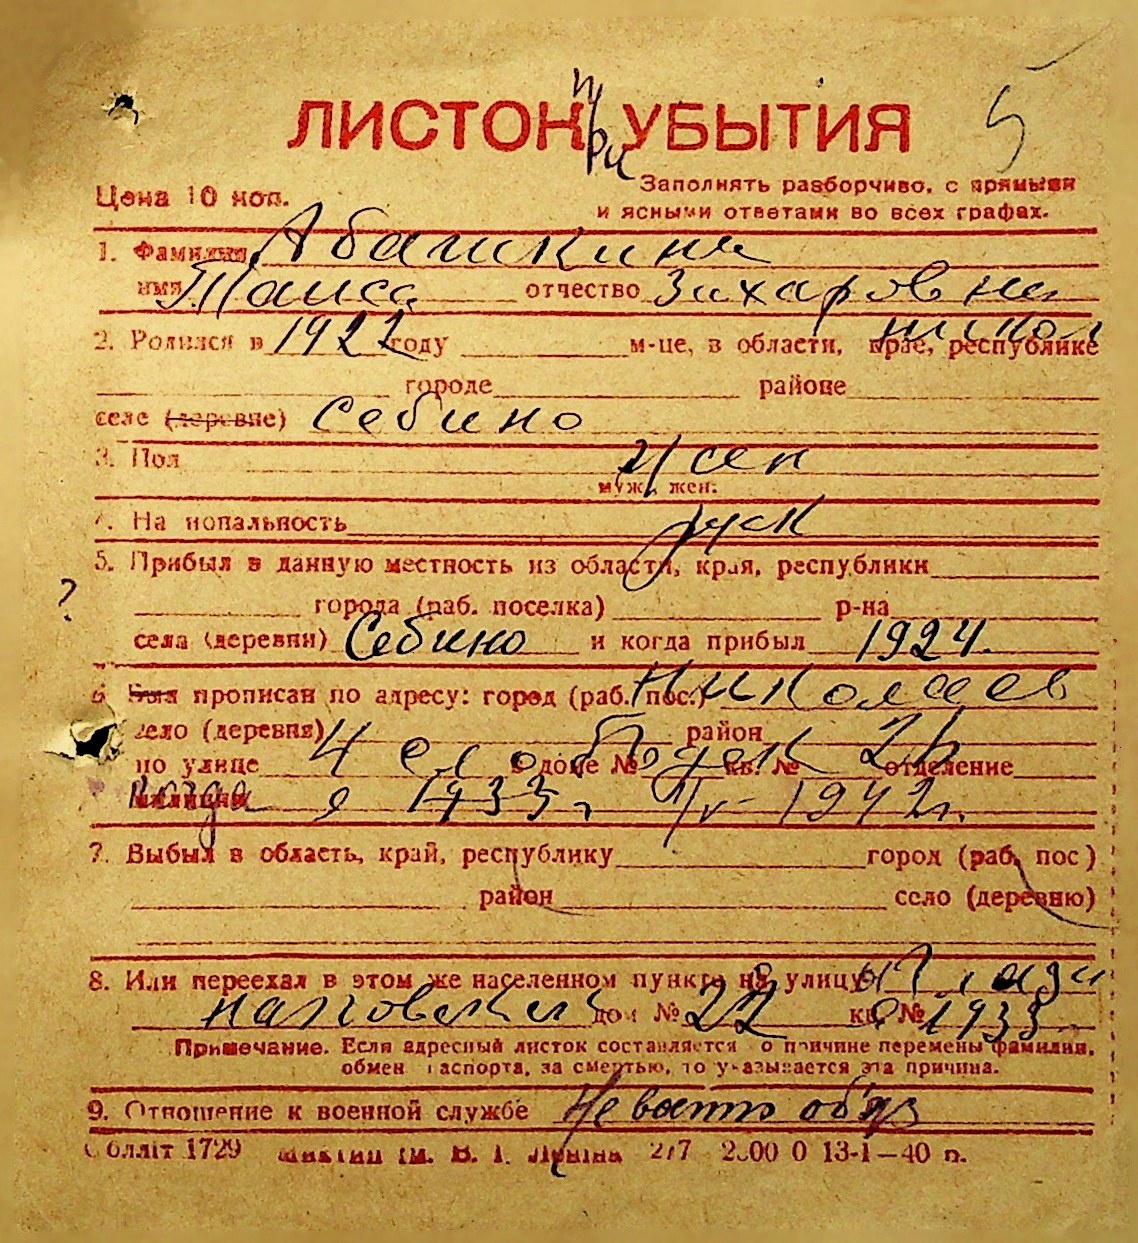 5
ЛИСТОК при УБЫТИЯ
Цена 10 коп.
Заполнять разборчиво, с прямыми
и ясными ответами во всех графах.
1. Фамилия Абашкина
имя Таиса отчество Захаровна
2. Родился в 1922 году м-це, в области, крае, республике никол
городе районе
селе (деревне) Себино
3. Пол жен
муж. жен.
4. Национальность руск
5. Прибыл в данную местность из области, края, республики
?
города (раб. поселка) р-на
села (деревни) Себино и когда прибыл 1924.
6 Был прописан по адресу: город (раб. пос.) Николаев
село (деревня) район
4 слободск 2б
по улице в доме № кв. № отделение
милиции
когда с 1933 1942г.
7. Выбыл в область, край, республику город (раб. пос)
район село (деревню)
8. Или переехал в этом же населенном пункте на улицу
дом № 22 кв. № 1933
Примечание. Если адресный листок составляется по причине перемены фамилии,
обмен паспорта, за смертью, то указывается эта причина.
9. Отношение к военной службе Невоенно обяз
Облліт 1729 ім. В. І. Леніна 217 13-1—40 п.